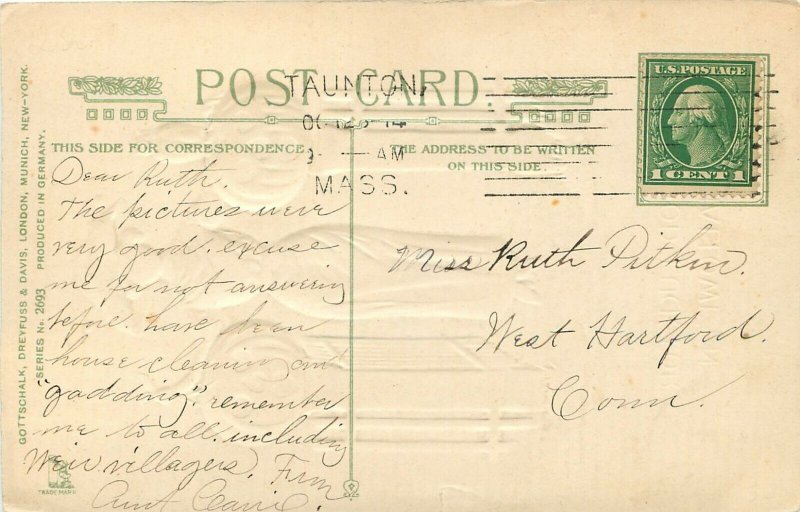 POST CARD.
TAUNTON,
9 — AM
MASS.
U.S. POSTAGE
1 CENT 1
THIS SIDE FOR CORRESPONDENCE
THE ADDRESS TO BE WRITTEN
ON THIS SIDE.
Dear Ruth.
The pictures were
very good. excuse
me for not answering
before. have been
house cleaning and
"gadding". remember
me to all. including
Weir villagers. From
Aunt
Miss Ruth Pitkin.
West Hartford.
Conn.
GOTTSCHALK, DREYFUSS & DAVIS, LONDON, MUNICH, NEW-YORK.
SERIES No. 2693 PRODUCED IN GERMANY.
TRADE MARK